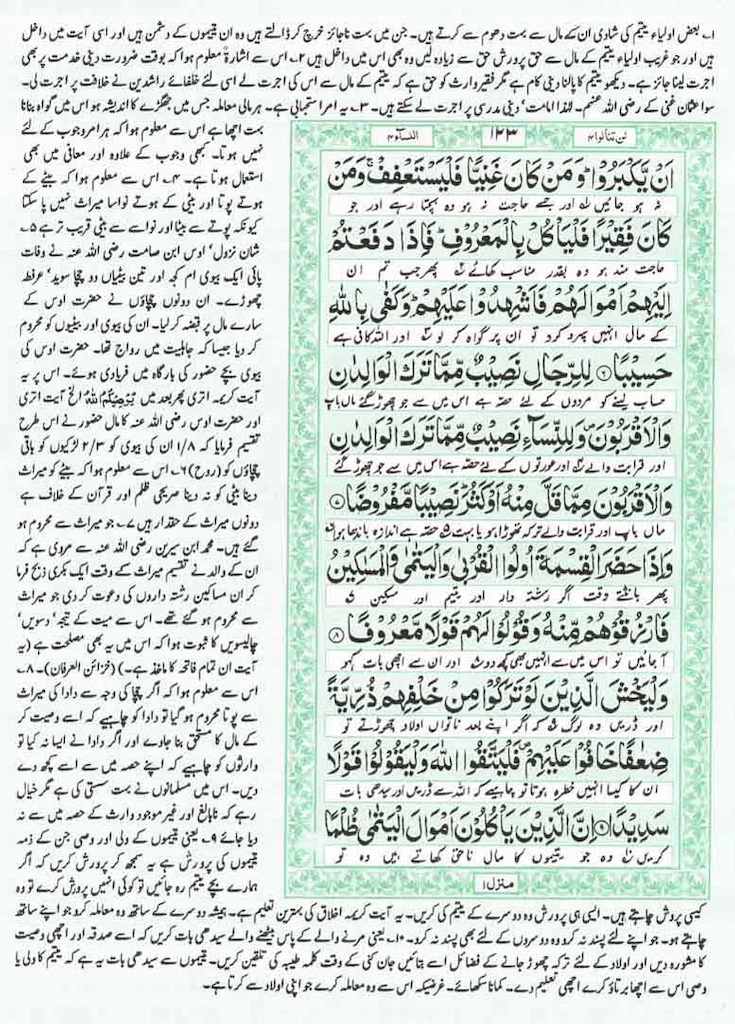 ۱۔ بعض اولیاء یتیم کی شادی ان کے مال سے بہت دھوم سے کرتے ہیں۔ جن میں بہت ناجائز خرچ کر ڈالتے ہیں وہ ان یتیموں کے دشمن ہیں اور اسی آیت میں داخل
ہیں اور جو غریب اولیاء یتیم کے مال سے حق پرورش حق سے زیادہ لیں وہ بھی اس میں داخل ہیں ۲۔ اس سے اشارۃً معلوم ہوا کہ بوقت ضرورت دینی خدمت پر بھی
اجرت لینا جائز ہے۔ دیکھو یتیم کا پالنا دینی کام ہے مگر فقیر وارث کو حق ہے کہ یتیم کے مال سے اس کی اجرت لے اسی لئے خلفائے راشدین نے خلافت پر اجرت لی۔
سوا عثمان غنی کے رضی اللہ عنہم۔ لہٰذا امامت، دینی مدرسی پر اجرت لے سکتے ہیں۔ ۳۔ یہ امر استحبابی ہے۔ ہر مالی معاملہ جس میں جھگڑے کا اندیشہ ہو اس میں گواہ بنانا
لن تنالوا۴ ۱۲۳ النسآء۴
اَنْ یَّكْبَرُوْاؕ وَ مَنْ كَانَ غَنِیًّا فَلْیَسْتَعْفِفْۚ وَ مَنْ
نہ ہو جائیں اور جسے حاجت نہ ہو وہ بچتا رہے اور جو
كَانَ فَقِیْرًا فَلْیَاْكُلْ بِالْمَعْرُوْفِؕ فَاِذَا دَفَعْتُمْ
حاجت مند ہو وہ بقدر مناسب کھائے پھر جب تم ان
اِلَیْهِمْ اَمْوَالَهُمْ فَاَشْهِدُوْا عَلَیْهِمْؕ وَ كَفٰى بِاللّٰهِ
کے مال انہیں سپرد کرو تو ان پر گواہ کر لو اور اللہ کافی ہے
حَسِیْبًا۝۶ لِلرِّجَالِ نَصِیْبٌ مِّمَّا تَرَكَ الْوَالِدٰنِ
حساب لینے کو مردوں کے لئے حصہ ہے اس میں سے جو چھوڑ گئے ماں باپ
وَ الْاَقْرَبُوْنَ۪ وَ لِلنِّسَآءِ نَصِیْبٌ مِّمَّا تَرَكَ الْوَالِدٰنِ
اور قرابت والے اور عورتوں کے لئے حصہ ہے اس میں سے جو چھوڑ گئے
وَ الْاَقْرَبُوْنَ مِمَّا قَلَّ مِنْهُ اَوْ كَثُرَؕ نَصِیْبًا مَّفْرُوْضًا۝۷
ماں باپ اور قرابت والے ترکہ تھوڑا ہو یا بہت حصہ ہے اندازہ باندھا ہوا
وَ اِذَا حَضَرَ الْقِسْمَةَ اُولُوا الْقُرْبٰى وَ الْیَتٰمٰى وَ الْمَسٰكِیْنُ
پھر بانٹتے وقت اگر رشتہ دار اور یتیم اور مسکین
فَارْزُقُوْهُمْ مِّنْهُ وَ قُوْلُوْا لَهُمْ قَوْلًا مَّعْرُوْفًا۝۸
آ جائیں تو اس میں سے انہیں بھی کچھ دو اور ان سے اچھی بات کہو
وَ لْیَخْشَ الَّذِیْنَ لَوْ تَرَكُوْا مِنْ خَلْفِهِمْ ذُرِّیَّةً
اور ڈریں وہ لوگ کہ اگر اپنے بعد ناتواں اولاد چھوڑتے تو
ضِعٰفًا خَافُوْا عَلَیْهِمْ۪ فَلْیَتَّقُوا اللّٰهَ وَ لْیَقُوْلُوْا قَوْلًا
ان کا کیسا انہیں خطرہ ہوتا تو چاہیے کہ اللہ سے ڈریں اور سیدھی بات
سَدِیْدًا۝۹ اِنَّ الَّذِیْنَ یَاْكُلُوْنَ اَمْوَالَ الْیَتٰمٰى ظُلْمًا
کریں وہ جو یتیموں کا مال ناحق کھاتے ہیں وہ تو
منزل۱
بہت اچھا ہے اس سے معلوم ہوا کہ ہر امر وجوب کے لئے
نہیں ہوتا۔ کبھی وجوب کے علاوہ اور معانی میں بھی
استعمال ہوتا ہے۔ ۴۔ اس سے معلوم ہوا کہ بیٹے کے
ہوتے پوتا اور بیٹی کے ہوتے نواسا میراث نہیں پا سکتا
کیونکہ پوتے سے بیٹا اور نواسے سے بیٹی قریب تر ہے ۵۔
شان نزول، اوس ابن صامت رضی اللہ عنہ نے وفات
پائی ایک بیوی ام کجہ اور تین بیٹیاں دو چچا سوید، عرفطہ
چھوڑے۔ ان دونوں چچاؤں نے حضرت اوس کے
سارے مال پر قبضہ کر لیا۔ ان کی بیوی اور بیٹیوں کو محروم
کر دیا جیسا کہ جاہلیت میں رواج تھا۔ حضرت اوس کی
بیوی بچے حضور کی بارگاہ میں فریادی ہوئے۔ اس پر یہ
آیت کریمہ اتری پھر بعد میں یُوْصِیْكُمُ اللّٰهُ الخ آیت اتری
اور حضرت اوس رضی اللہ عنہ کا مال حضور نے اس طرح
تقسیم فرمایا کہ ۱/۸ ان کی بیوی کو ۲/۳ لڑکیوں کو باقی
چچاؤں کو (روح) ۶۔ اس سے معلوم ہوا کہ بیٹے کو میراث
دینا بیٹی کو نہ دینا صریحی ظلم اور قرآن کے خلاف ہے
دونوں میراث کے حقدار ہیں ۷۔ جو میراث سے محروم ہو
گئے ہیں۔ محمد ابن سیرین رضی اللہ عنہ سے مروی ہے کہ
ان کے والد نے تقسیم میراث کے وقت ایک بکری ذبح فرما
کر ان مساکین رشتہ داروں کی دعوت کر دی جو میراث
سے محروم ہو گئے تھے۔ اس سے میت کے تیجہ، دسویں،
چالیسویں کا ثبوت ہوا کہ اس میں یہ بھی مصلحت ہے (یہ
آیت ان تمام فاتحہ کا ماخذ ہے۔) (خزائن العرفان)۔ ۸۔
اس سے معلوم ہوا کہ اگر چچا کی وجہ سے دادا کی میراث
سے پوتا محروم ہو گیا تو دادا کو چاہیے کہ اسے وصیت کر
کے مال کا مستحق بنا جاوے اور اگر دادا نے ایسا نہ کیا تو
وارثوں کو چاہیے کہ اپنے حصہ میں سے اسے کچھ دے
دیں۔ اس میں مسلمانوں نے بہت سستی کی ہے مگر خیال
رہے کہ نابالغ اور غیر موجود وارث کے حصہ میں سے نہ
دیا جائے ۹۔ یعنی یتیموں کے ولی اور وصی جن کے ذمہ
یتیموں کی پرورش ہے یہ سمجھ کر پرورش کریں کہ اگر
ہمارے بچے یتیم رہ جائیں تو کوئی انہیں پرورش کرے تو وہ
کیسی پروش چاہتے ہیں۔ ایسی ہی پرورش وہ دوسرے کے یتیم کی کریں۔ یہ آیت کریمہ اخلاق کی بہترین تعلیم ہے۔ ہمیشہ دوسرے کے ساتھ وہ معاملہ کرو جو اپنے ساتھ
چاہتے ہو۔ جو اپنے لئے پسند نہ کرو وہ دوسروں کے لئے بھی پسند نہ کرو۔ ۱۰۔ یعنی مرنے والے کے پاس بیٹھنے والے سیدھی بات کریں کہ اسے صدقہ اور اچھی وصیت
کا مشورہ دیں اور اولاد کے لئے ترکہ چھوڑ جانے کے فضائل اسے بتائیں جان کنی کے وقت کلمہ طیبہ کی تلقین کریں۔ یتیموں سے سیدھی بات یہ ہے کہ یتیم کا ولی یا
وصی اس سے اچھا برتاؤ کرے اچھی تعلیم دے۔ کمانا سکھائے۔ غرضیکہ اس سے وہ معاملہ کرے جو اپنی اولاد سے کرتا ہے۔